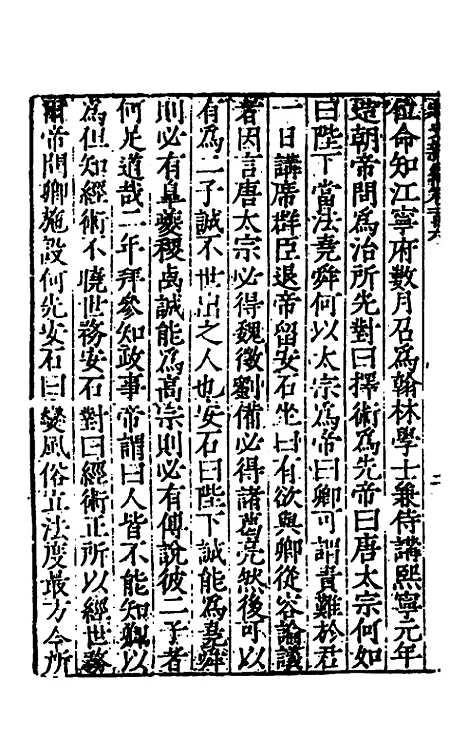 位命知江寧府數月召為翰林學士兼侍講熙寧元年
造朝帝問為治所先對曰擇術為先帝曰唐太宗何如
曰陛下當法堯舜何以太宗為帝曰卿可謂責難於君
一日講席群臣退帝留安石坐曰有欲與卿從容論議
者因言唐太宗必得魏徵劉備必得諸葛亮然後可以
有為二子誠不世出之人也安石曰陛下誠能為堯舜
則必有皐夔稷卨誠能為高宗則必有傅說彼二子者
何足道哉二年拜參知政事帝謂曰人皆不能知卿以
為但知經術不曉世務安石對曰經術正所以經世務
爾帝問卿施設何先安石曰變風俗立法度最方今所